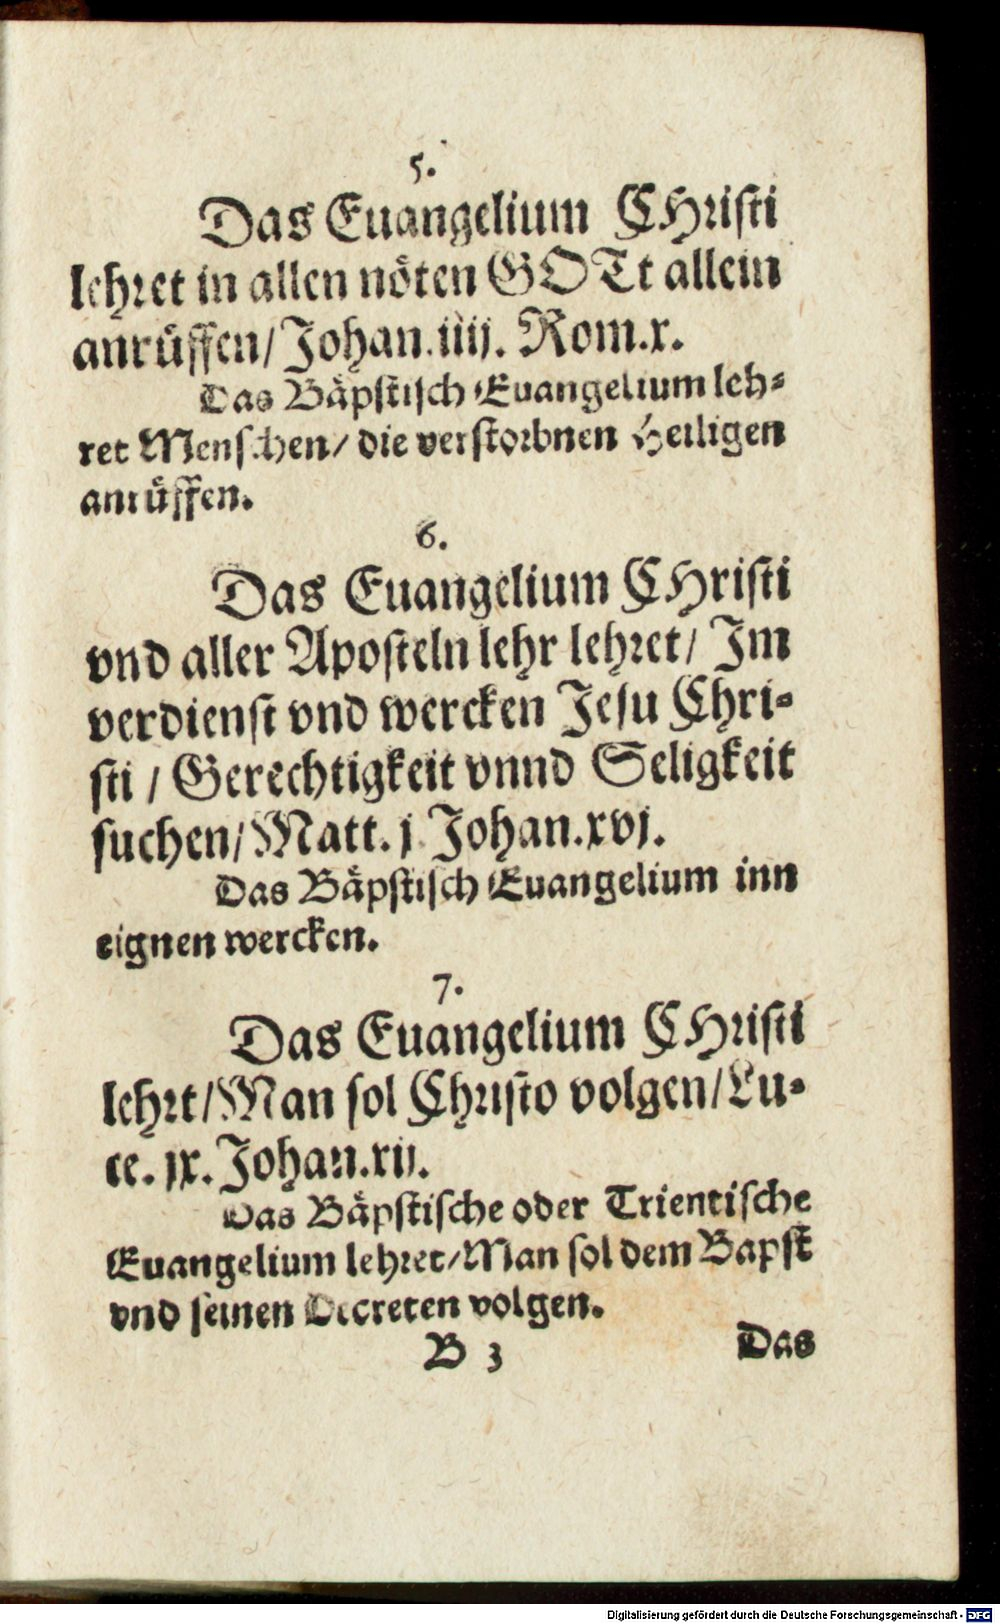 5.
Das Euangelium CHristi
lehret in allen nöten GOTt allein
anrüffen/ Johan. iiij. Rom. x.
Das Bäpstisch Euangelium leh-
ret Menschen/ die verstorbnen Heiligen
anrüffen.
6.
Das Euangelium CHristi
vnd aller Aposteln lehr lehret/ Im
verdienst vnd wercken Jesu Chri-
sti / Gerechtigkeit vnnd Seligkeit
suchen/ Matt. j. Johan. xvj.
Das Bäpstisch Euangelium inn
eignen wercken.
7.
Das Euangelium CHristi
lehrt/ Man sol Christo volgen/ Lu-
ce. ix. Johan. xij.
Das Bäpstische oder Trientische
Euangelium lehret/ Man sol dem Bapst
vnd seinen Decreten volgen.
B 3 Das
Digitalisierung gefördert durch die Deutsche Forschungsgemeinschaft - DFG